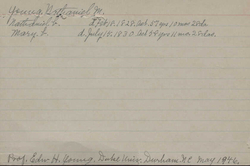 Young, Nathaniel, Jr.
Nathaniel, Jr. d. Feb. 18, 1828. aet. 57 yrs 11 mos. 28 da.
Mary, d. July 18, 1830 aet 59 yrs 11 mos. 25 da.
Prof. Edw. H. Young. Duke Univ. Durham N.C. May 1946.